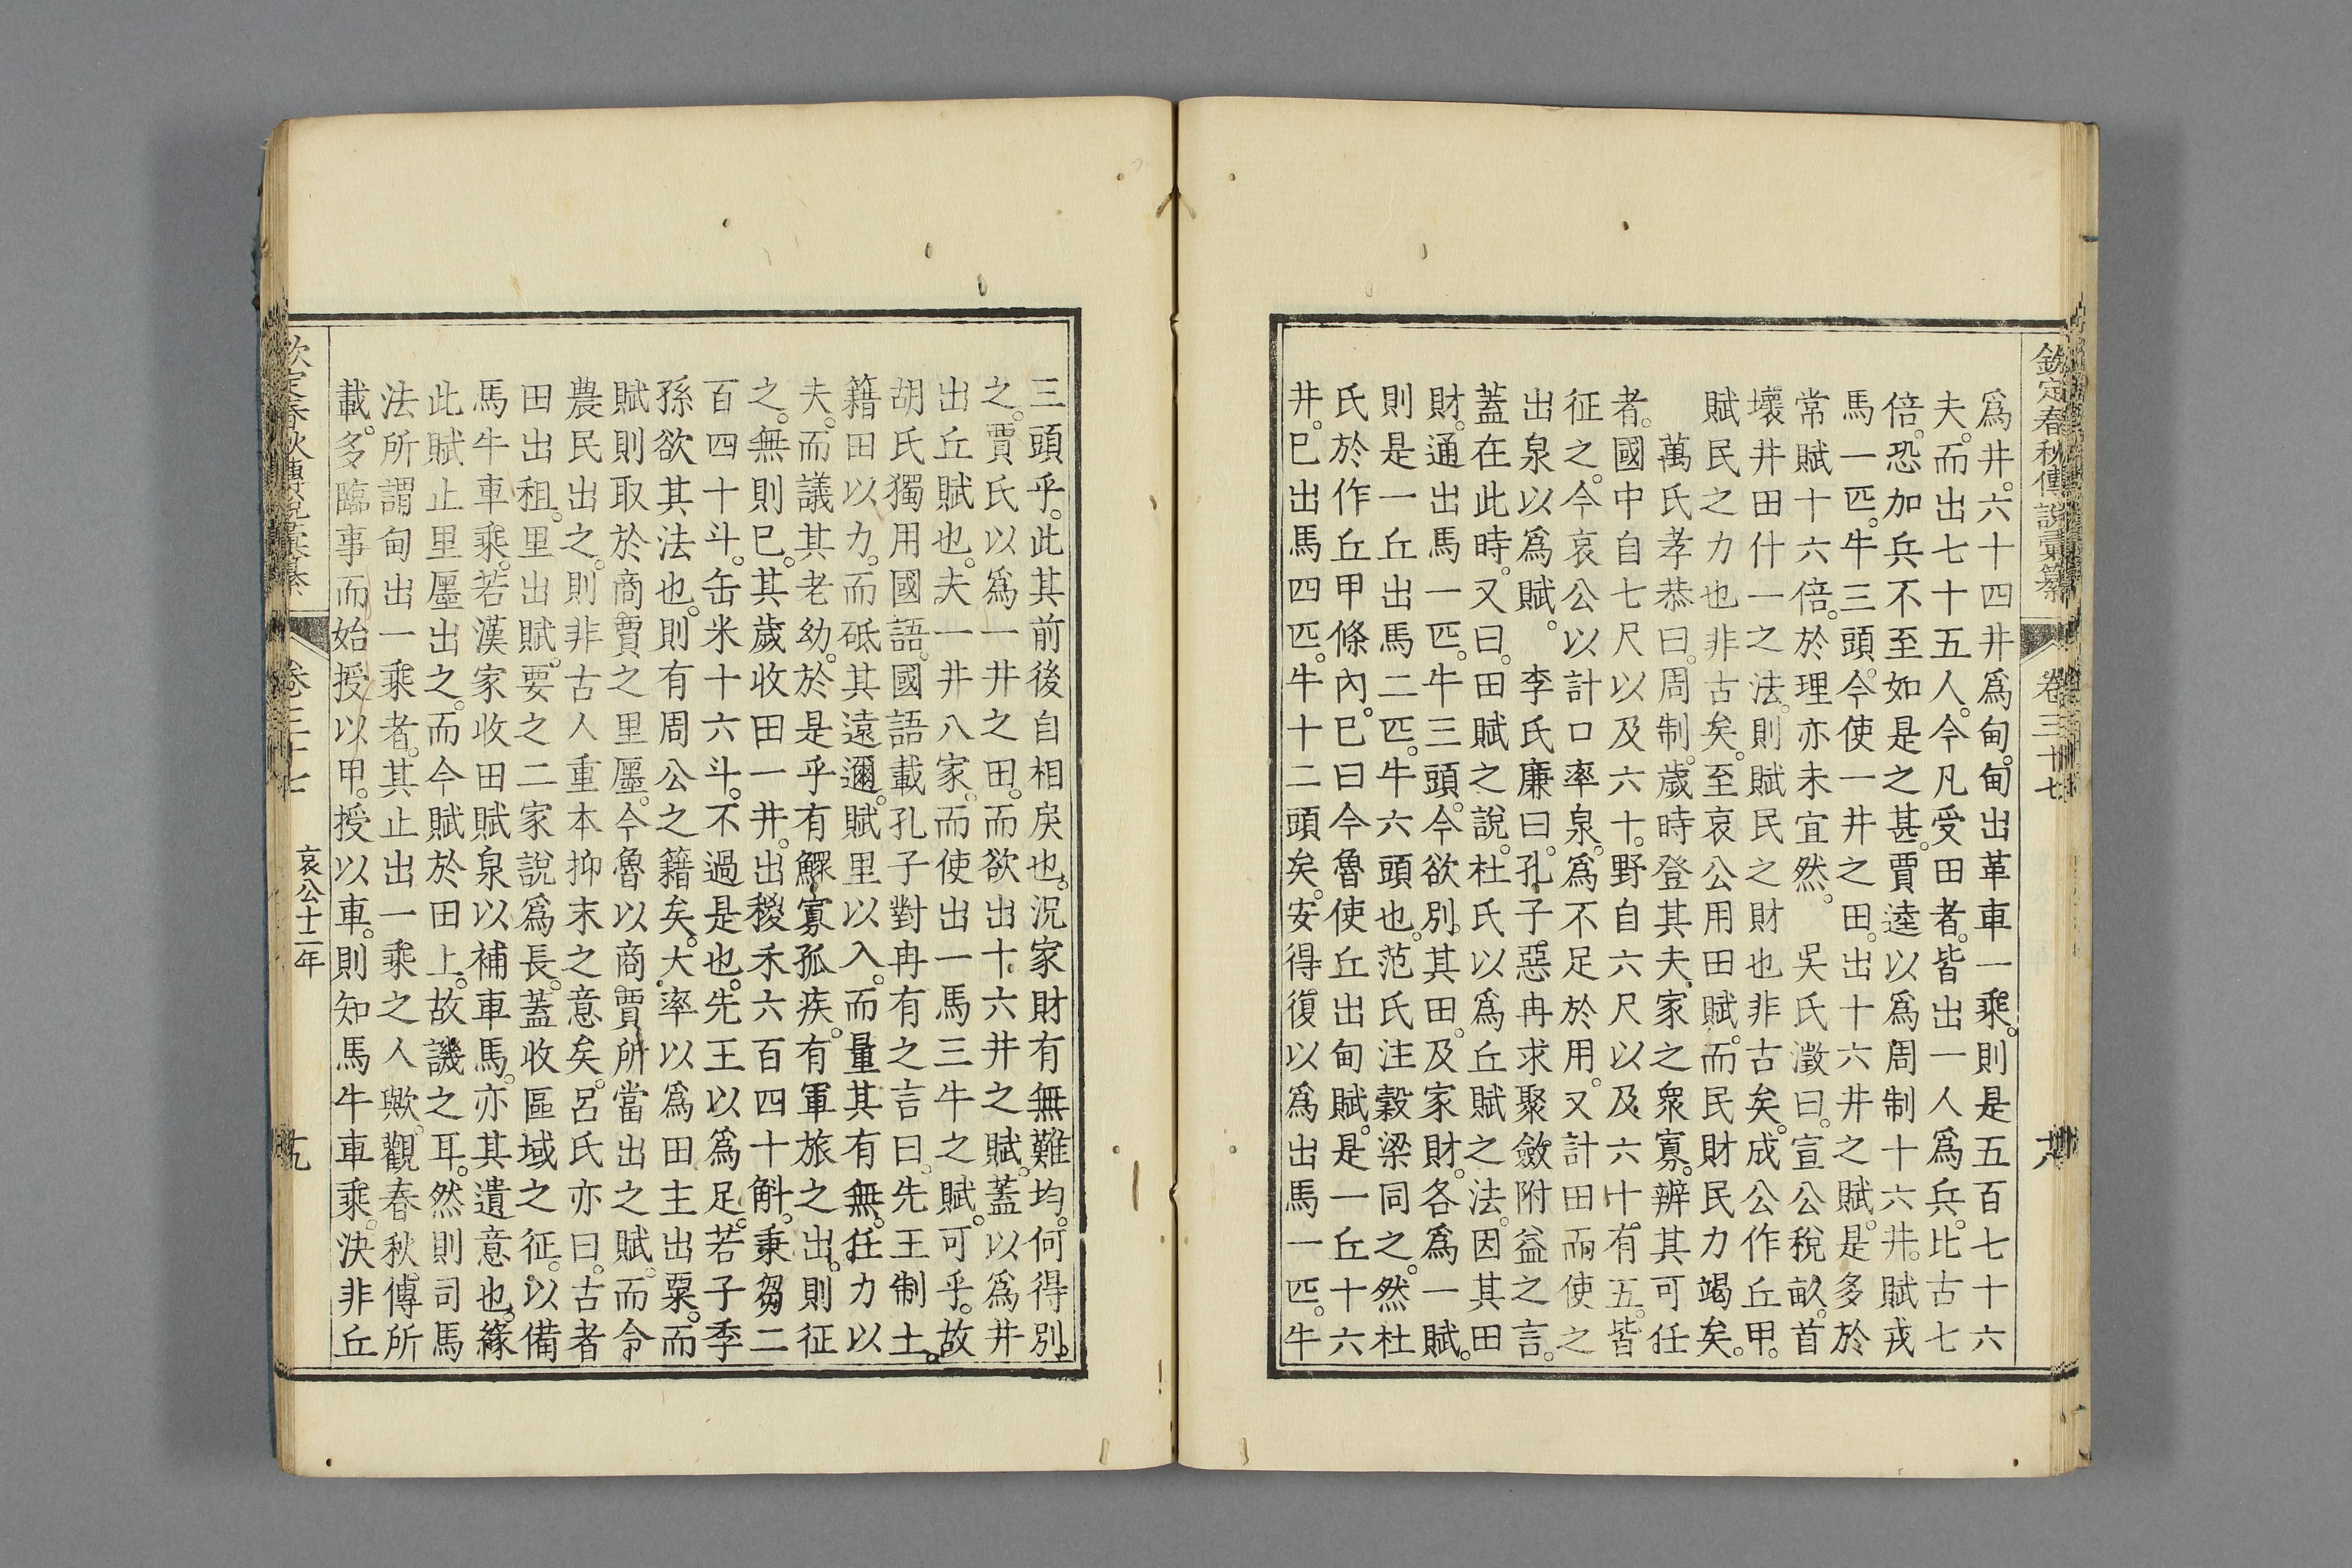 欽定春秋傳說彙纂 卷三十七
爲井。六十四井爲甸。甸出革車一乘。則是五百七十六
夫。而出七十五人。今凡受田者。皆出一人爲兵。比古七
倍。恐加兵不至如是之甚。賈逵以爲周制十六井。賦戎
馬一匹。牛三頭。今使一井之田。出十六井之賦。是多於
常賦十六倍。於理亦未宜然。 吳氏澂曰。宣公稅畝。首
壞井田什一之法。則賦民之財也非古矣。成公作丘甲。
賦民之力也非古矣。至哀公用田賦。而民財民力竭矣。
萬氏孝恭曰。周制。歲時登其夫家之衆寡。辨其可任
者。國中自七尺以及六十。野自六尺以及六十有五。皆
征之。今哀公以計口率泉。爲不足於用。又計田而使之
出泉以爲賦。 李氏廉曰。孔子惡冉求聚斂附益之言。
蓋在此時。又曰。田賦之說。杜氏以爲丘賦之法。因其田
財。通出馬一匹。牛三頭。今欲別其田。及家財。各爲一賦。
則是一丘出馬二匹。牛六頭也。范氏注穀梁同之。然杜
氏於作丘甲條內。已曰今魯使丘出甸賦。是一丘十六
井。已出馬四匹。牛十二頭矣。安得復以爲出馬一匹。牛
三頭乎。此其前後自相戾也。況家財有無難均。何得別
之。賈氏以爲一井之田。而欲出十六井之賦。蓋以爲井
出丘賦也。夫一井八家。而使出一馬三牛之賦。可乎。故
胡氏獨用國語。國語載孔子對冉有之言曰。先王制土。
籍田以力。而砥其遠邇。賦里以入。而量其有無。任力以
夫。而議其老幼。於是乎有鰥寡孤疾。有軍旅之出。則征
之。無則已。其歲收田一井。出稯禾六百四十斛。秉芻二
百四十斗。缶米十六斗。不過是也。先王以爲足。若子季
孫欲其法也。則有周公之籍矣。大率以爲田主出粟。而
賦則取於商賈之里廛。今魯以商賈所當出之賦。而令
農民出之。則非古人重本抑末之意矣。呂氏亦曰。古者
田出租。里出賦。要之二家說爲長。蓋收區域之征。以備
馬牛車乘。若漢家收田賦泉以補車馬。亦其遺意也。緣
此賦止里廛出之。而今賦於田上。故譏之耳。然則司馬
法所謂甸出一乘者。其止出一乘之人歟。觀春秋。傳所
載。多臨事而始授以甲。授以車。則知馬牛車乘。決非丘
欽定春秋傳說彙纂 卷三十七 哀公十二年